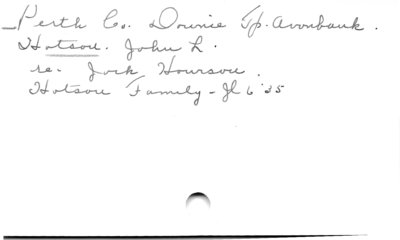 Perth Co. Downie Tp. Avonbank.
Hotson. John L.
re- Jock Hourson.
Hotson Family - Jl 6 '35